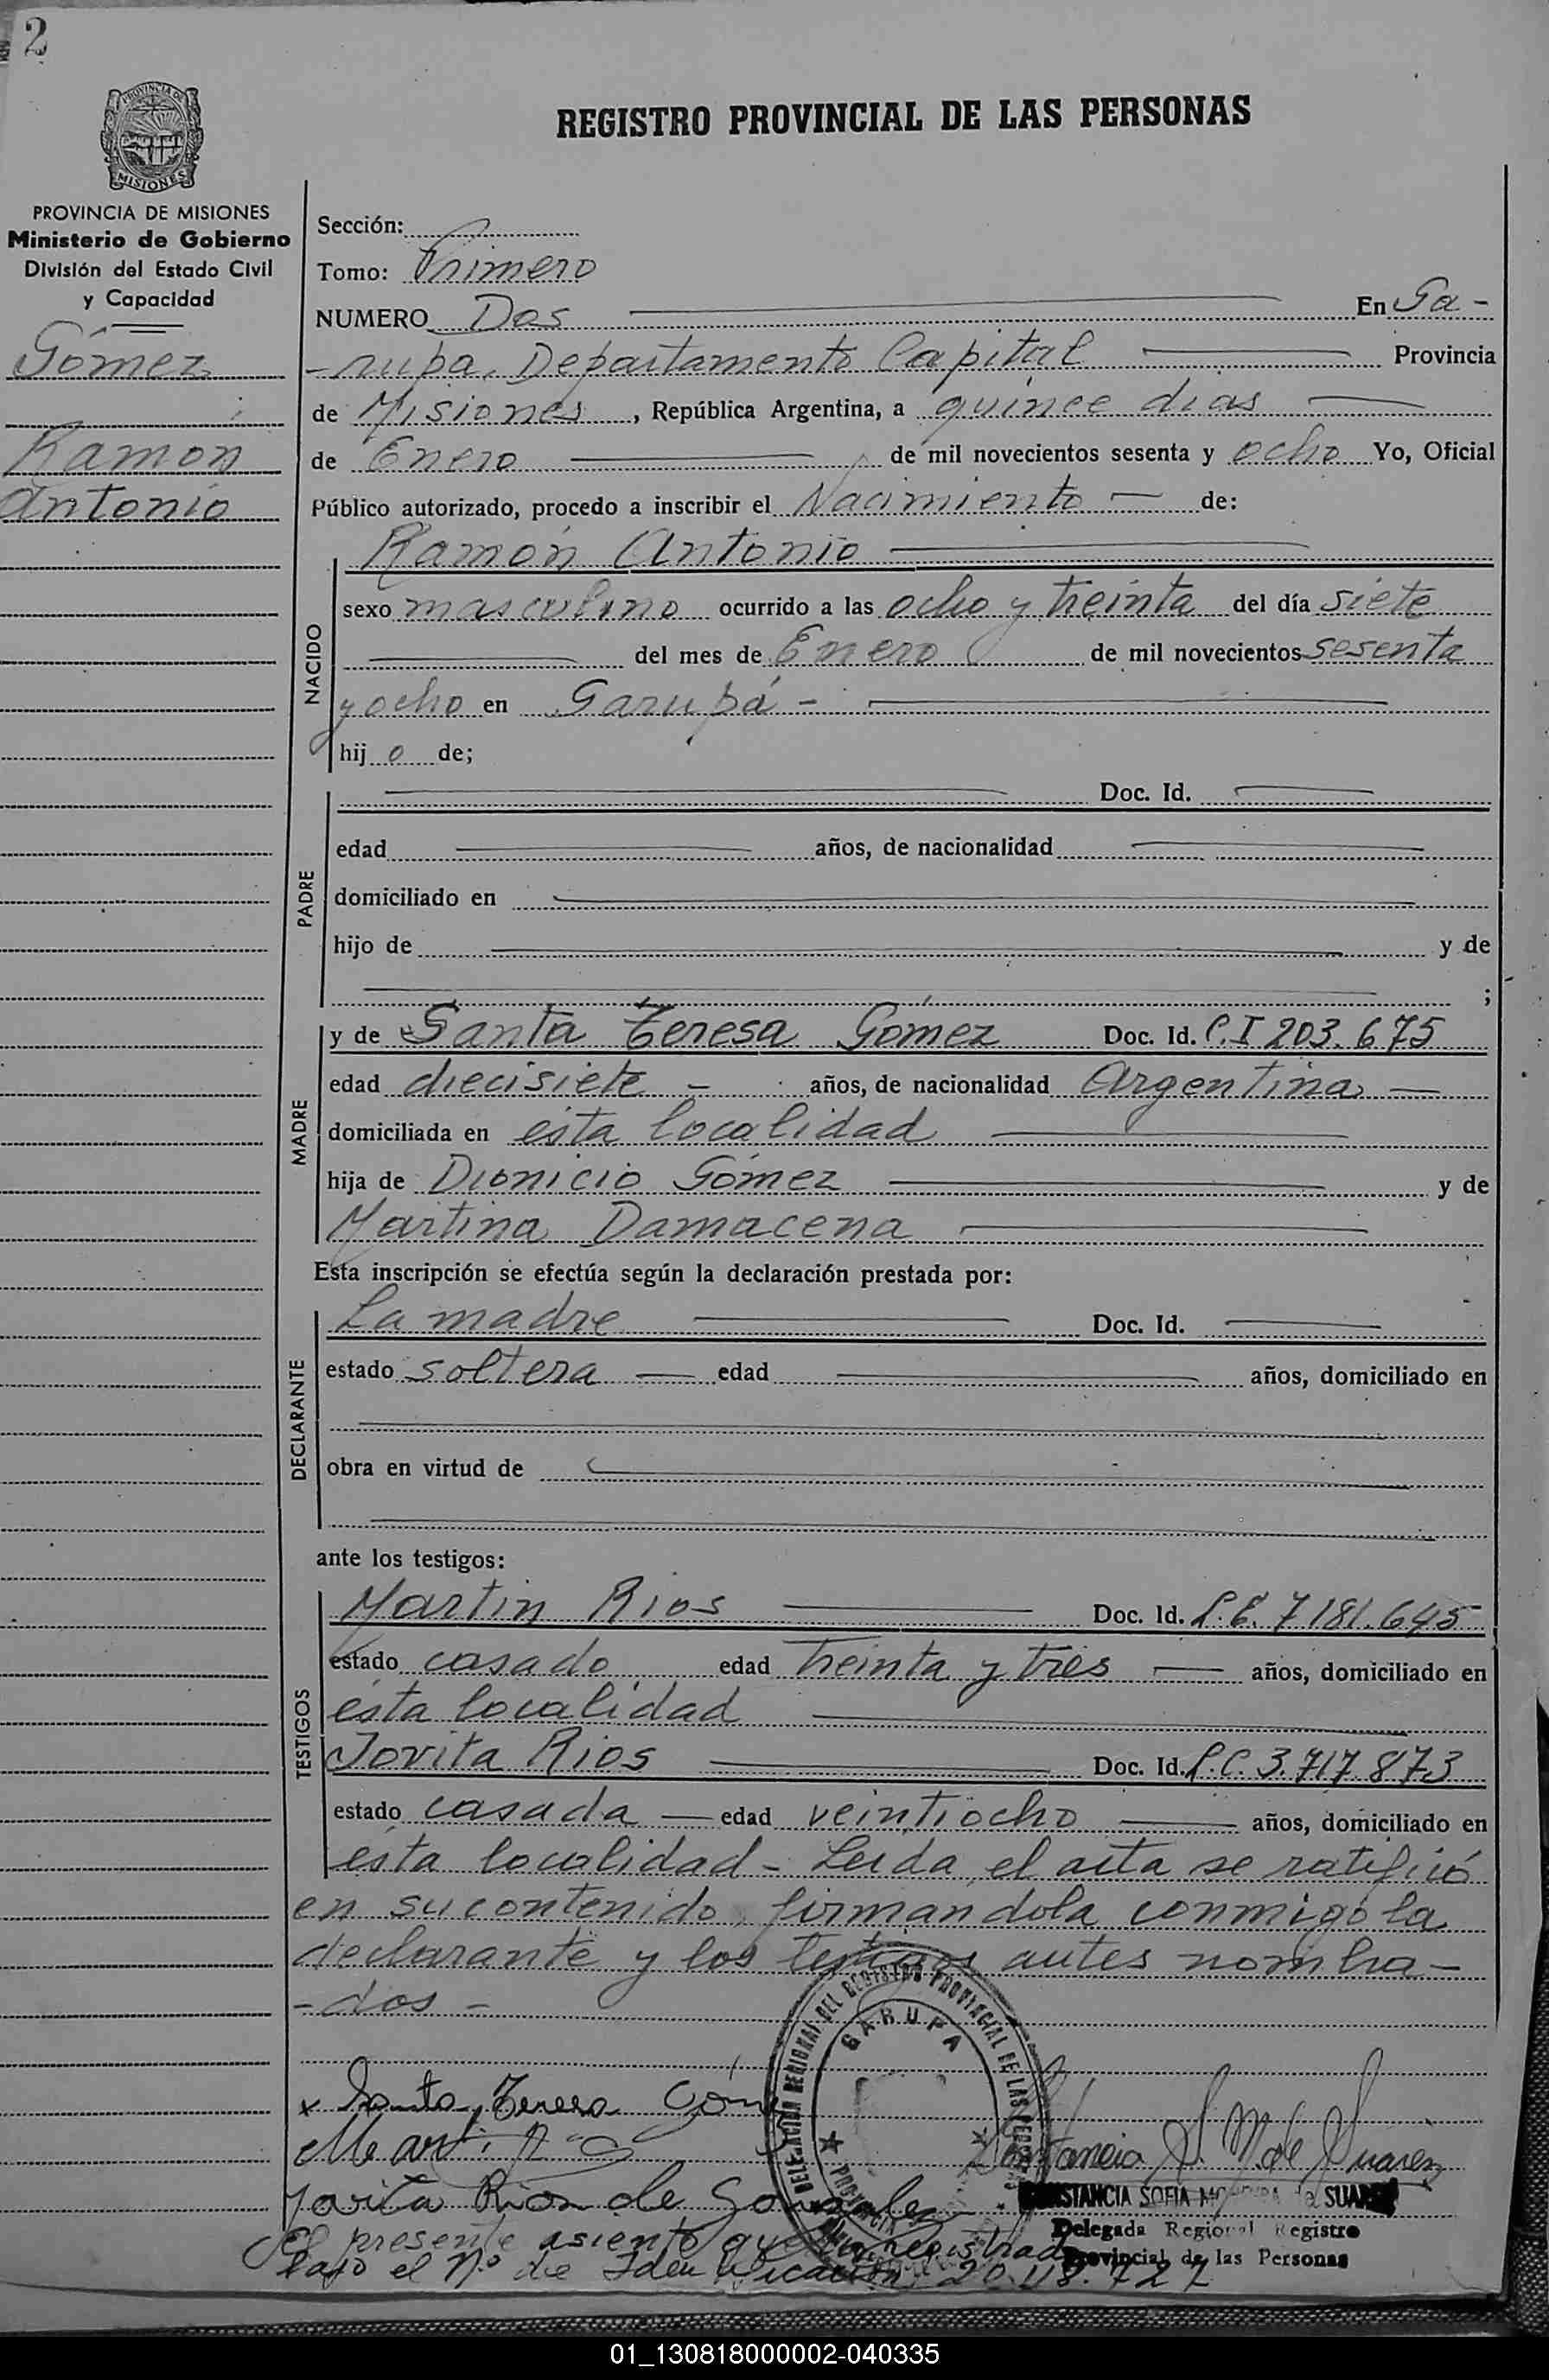 2
PROVINCIA DE
MISIONES
PROVINCIA DE MISIONES
Ministerio de Gobierno
División del Estado Civil
y Capacidad
Gómez
Ramón
Antonio
REGISTRO PROVINCIAL DE LAS PERSONAS
Sección:
Tomo: Primero
NUMERO Dos En Ga-
-rupa, Departamento Capital Provincia
de Misiones, República Argentina, a quince dias
de Enero de mil novecientos sesenta y ocho Yo, Oficial
Público autorizado, procedo a inscribir el Nacimiento de:
NACIDO
Ramón Antonio
sexo masculino ocurrido a las ocho y treinta del día siete
del mes de Enero de mil novecientos sesenta
y ocho en Garupá -
hij o de;
PADRE
Doc. Id.
edad años, de nacionalidad
domiciliado en
hijo de y de
;
MADRE
y de Santa Teresa Gómez Doc. Id. C.I 203.675
edad diecisiete - años, de nacionalidad Argentina
domiciliada en ésta localidad
hija de Dionicio Gómez y de
Martina Damacena
Esta inscripción se efectúa según la declaración prestada por:
DECLARANTE
La madre Doc. Id.
estado soltera edad años, domiciliado en
obra en virtud de
ante los testigos:
TESTIGOS
Martin Rios Doc. Id. L.E. 7181.645
estado casado edad treinta y tres años, domiciliado en
ésta localidad
Jovita Rios Doc. Id. L.C. 3.717.873
estado casada edad veintiocho años, domiciliado en
ésta localidad - Leida el acta se ratificó
en su contenido, firmandola conmigo la
declarante y los testigos antes nombra-
-dos -
DELEGACION REGIONAL DEL REGISTRO PROVINCIAL DE LAS PERSONAS
GARUPA
x Santa Teresa Góm
Marti
Constancia S. M. de Suarez
Jovita Rios de Gonzalez
CONSTANCIA SOFIA de SUAREZ
Delegada Regional Registro
Provincial de las Personas
El presente asiento registrado
bajo el Nº de Identificación
01_130818000002-040335